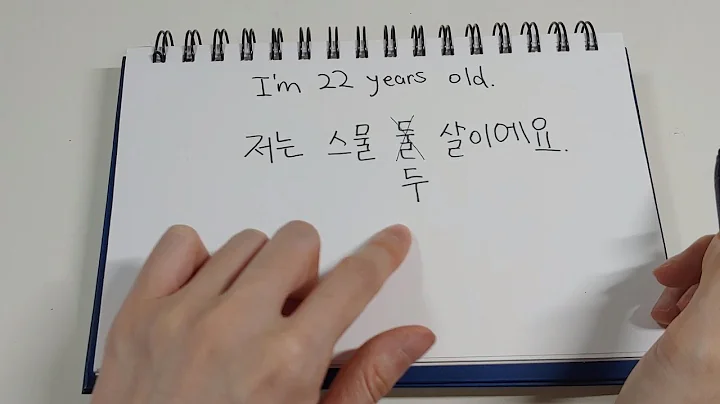 I'm 22 years old.
저는 스물 둘 살이에요.
두